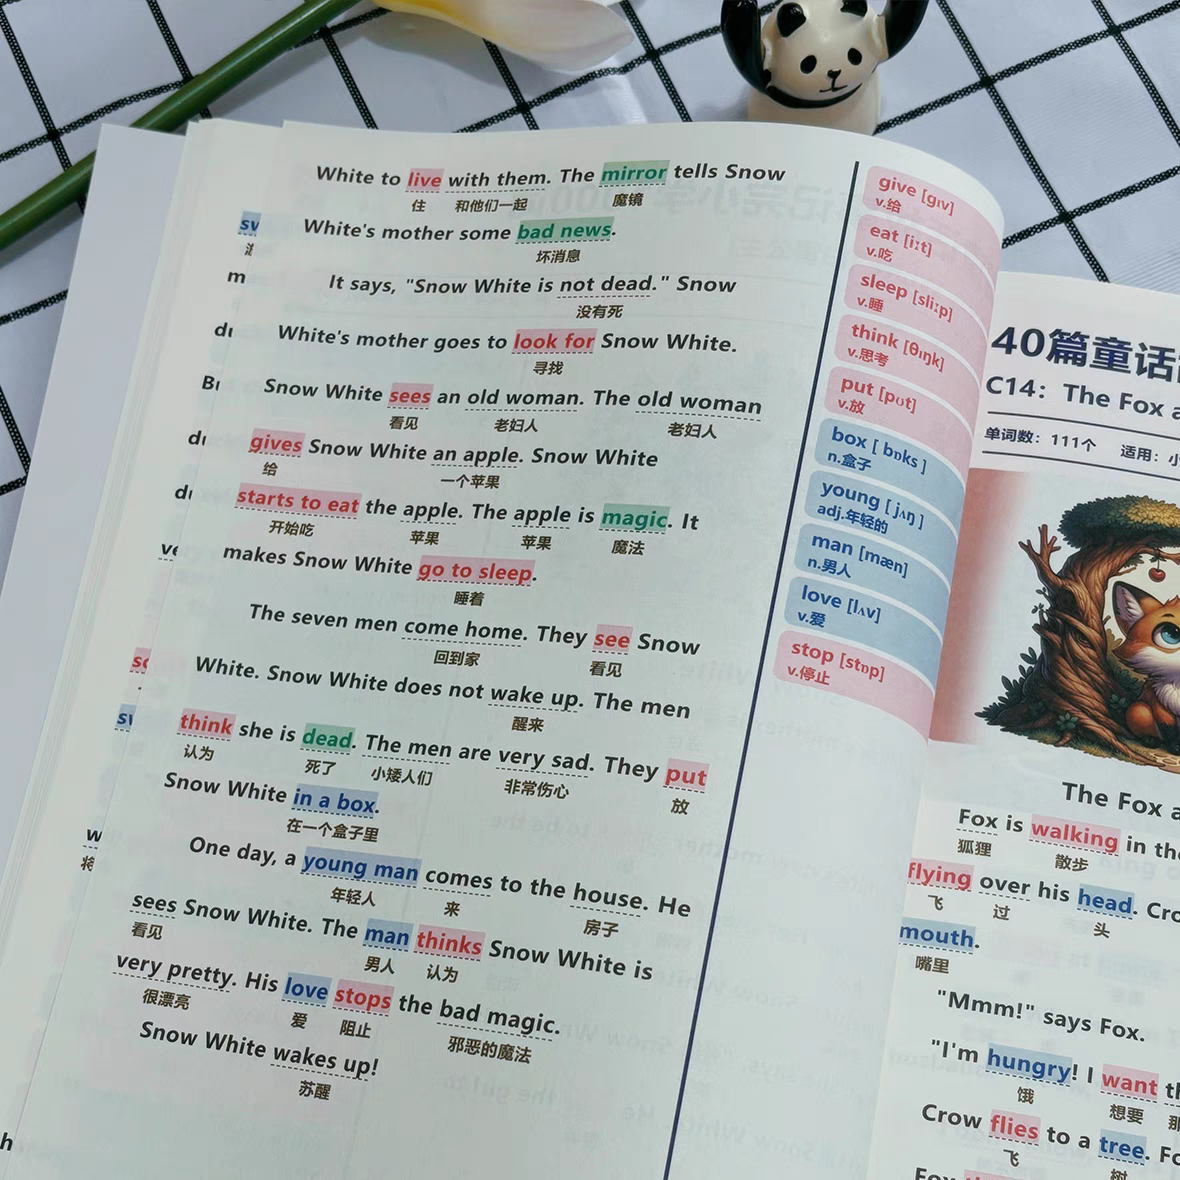 White to live with them. The mirror tells Snow
住 和他们一起 魔镜
White's mother some bad news.
坏消息
It says, "Snow White is not dead." Snow
没有死
White's mother goes to look for Snow White.
寻找
Snow White sees an old woman. The old woman
看见 老妇人 老妇人
gives Snow White an apple. Snow White
给 一个苹果
starts to eat the apple. The apple is magic. It
开始吃 苹果 苹果 魔法
makes Snow White go to sleep.
睡着
The seven men come home. They see Snow
回到家 看见
White. Snow White does not wake up. The men
醒来
think she is dead. The men are very sad. They put
认为 死了 小矮人们 非常伤心 放
Snow White in a box.
在一个盒子里
One day, a young man comes to the house. He
年轻人 来 房子
sees Snow White. The man thinks Snow White is
看见 男人 认为
very pretty. His love stops the bad magic.
很漂亮 爱 阻止 邪恶的魔法
Snow White wakes up!
苏醒
give [gɪv]
v.给
eat [iːt]
v.吃
sleep [sliːp]
v.睡
think [θɪŋk]
v.思考
put [pʊt]
v.放
box [ bɒks ]
n.盒子
young [ jʌŋ ]
adj.年轻的
man [mæn]
n.男人
love [lʌv]
v.爱
stop [stɒp]
v.停止
40篇童话
C14: The Fox a
单词数：111个 适用：小
The Fox a
Fox is walking in the
狐狸 散步
flying over his head. Cro
飞 过 头
mouth.
嘴里
"Mmm!" says Fox.
"I'm hungry! I want th
饿 想要 那
Crow flies to a tree. Fo
飞 树
Fox